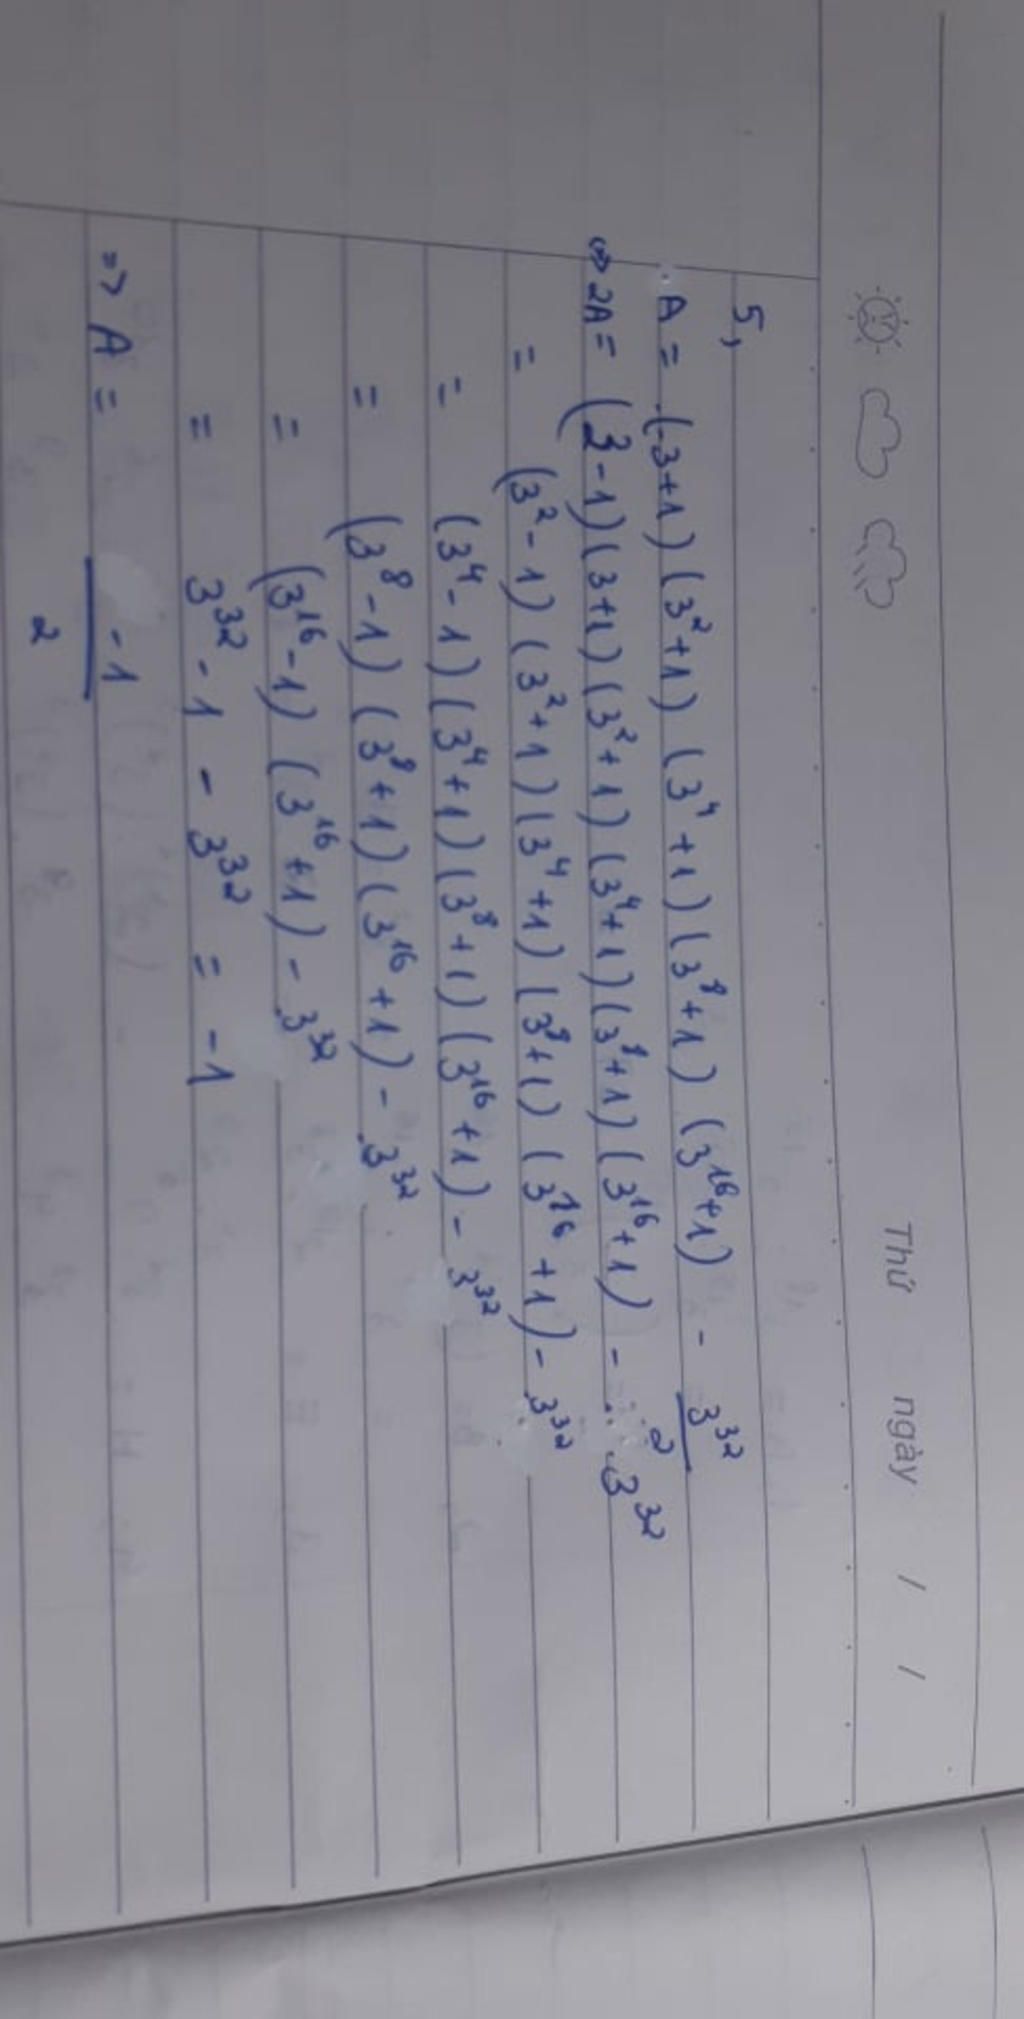 Thứ ngày / /
5,
A = (3+1)(3²+1)(3⁴+1)(3⁸+1)(3¹⁶+1) - 3³²/2
⇔ 2A = (3-1)(3+1)(3²+1)(3⁴+1)(3⁸+1)(3¹⁶+1) - 3³²
= (3²-1)(3²+1)(3⁴+1)(3⁸+1)(3¹⁶+1) - 3³²
= (3⁴-1)(3⁴+1)(3⁸+1)(3¹⁶+1) - 3³²
= (3⁸-1)(3⁸+1)(3¹⁶+1) - 3³²
= (3¹⁶-1)(3¹⁶+1) - 3³²
= 3³² - 1 - 3³² = -1
=> A = -1/2